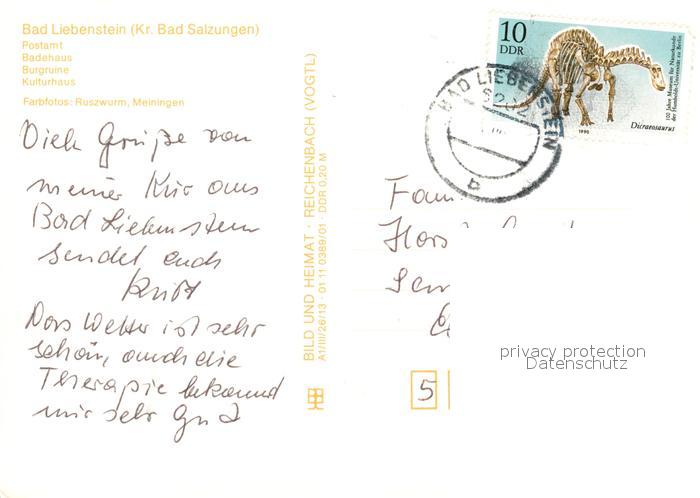 Bad Liebenstein (Kr. Bad Salzungen)
Postamt
Badehaus
Burgruine
Kulturhaus
Farbfotos: Ruszwurm, Meiningen
Viele Grüße von
meiner Kur aus
Bad Liebenstein
sendet euch
Das Wetter ist sehr
schön, auch die
Therapie bekommt
mir sehr gut
BILD UND HEIMAT · REICHENBACH (VOGTL)
A1/III/26/13 · 01 11 0389/01 · DDR 0,20 M
10
DDR
100 Jahre Museum für Naturkunde
der Humboldt-Universität zu Berlin
1990
Dicraeosaurus
BAD LIEBENSTEIN
6202
a
Fam
Hors
5
privacy protection
Datenschutz